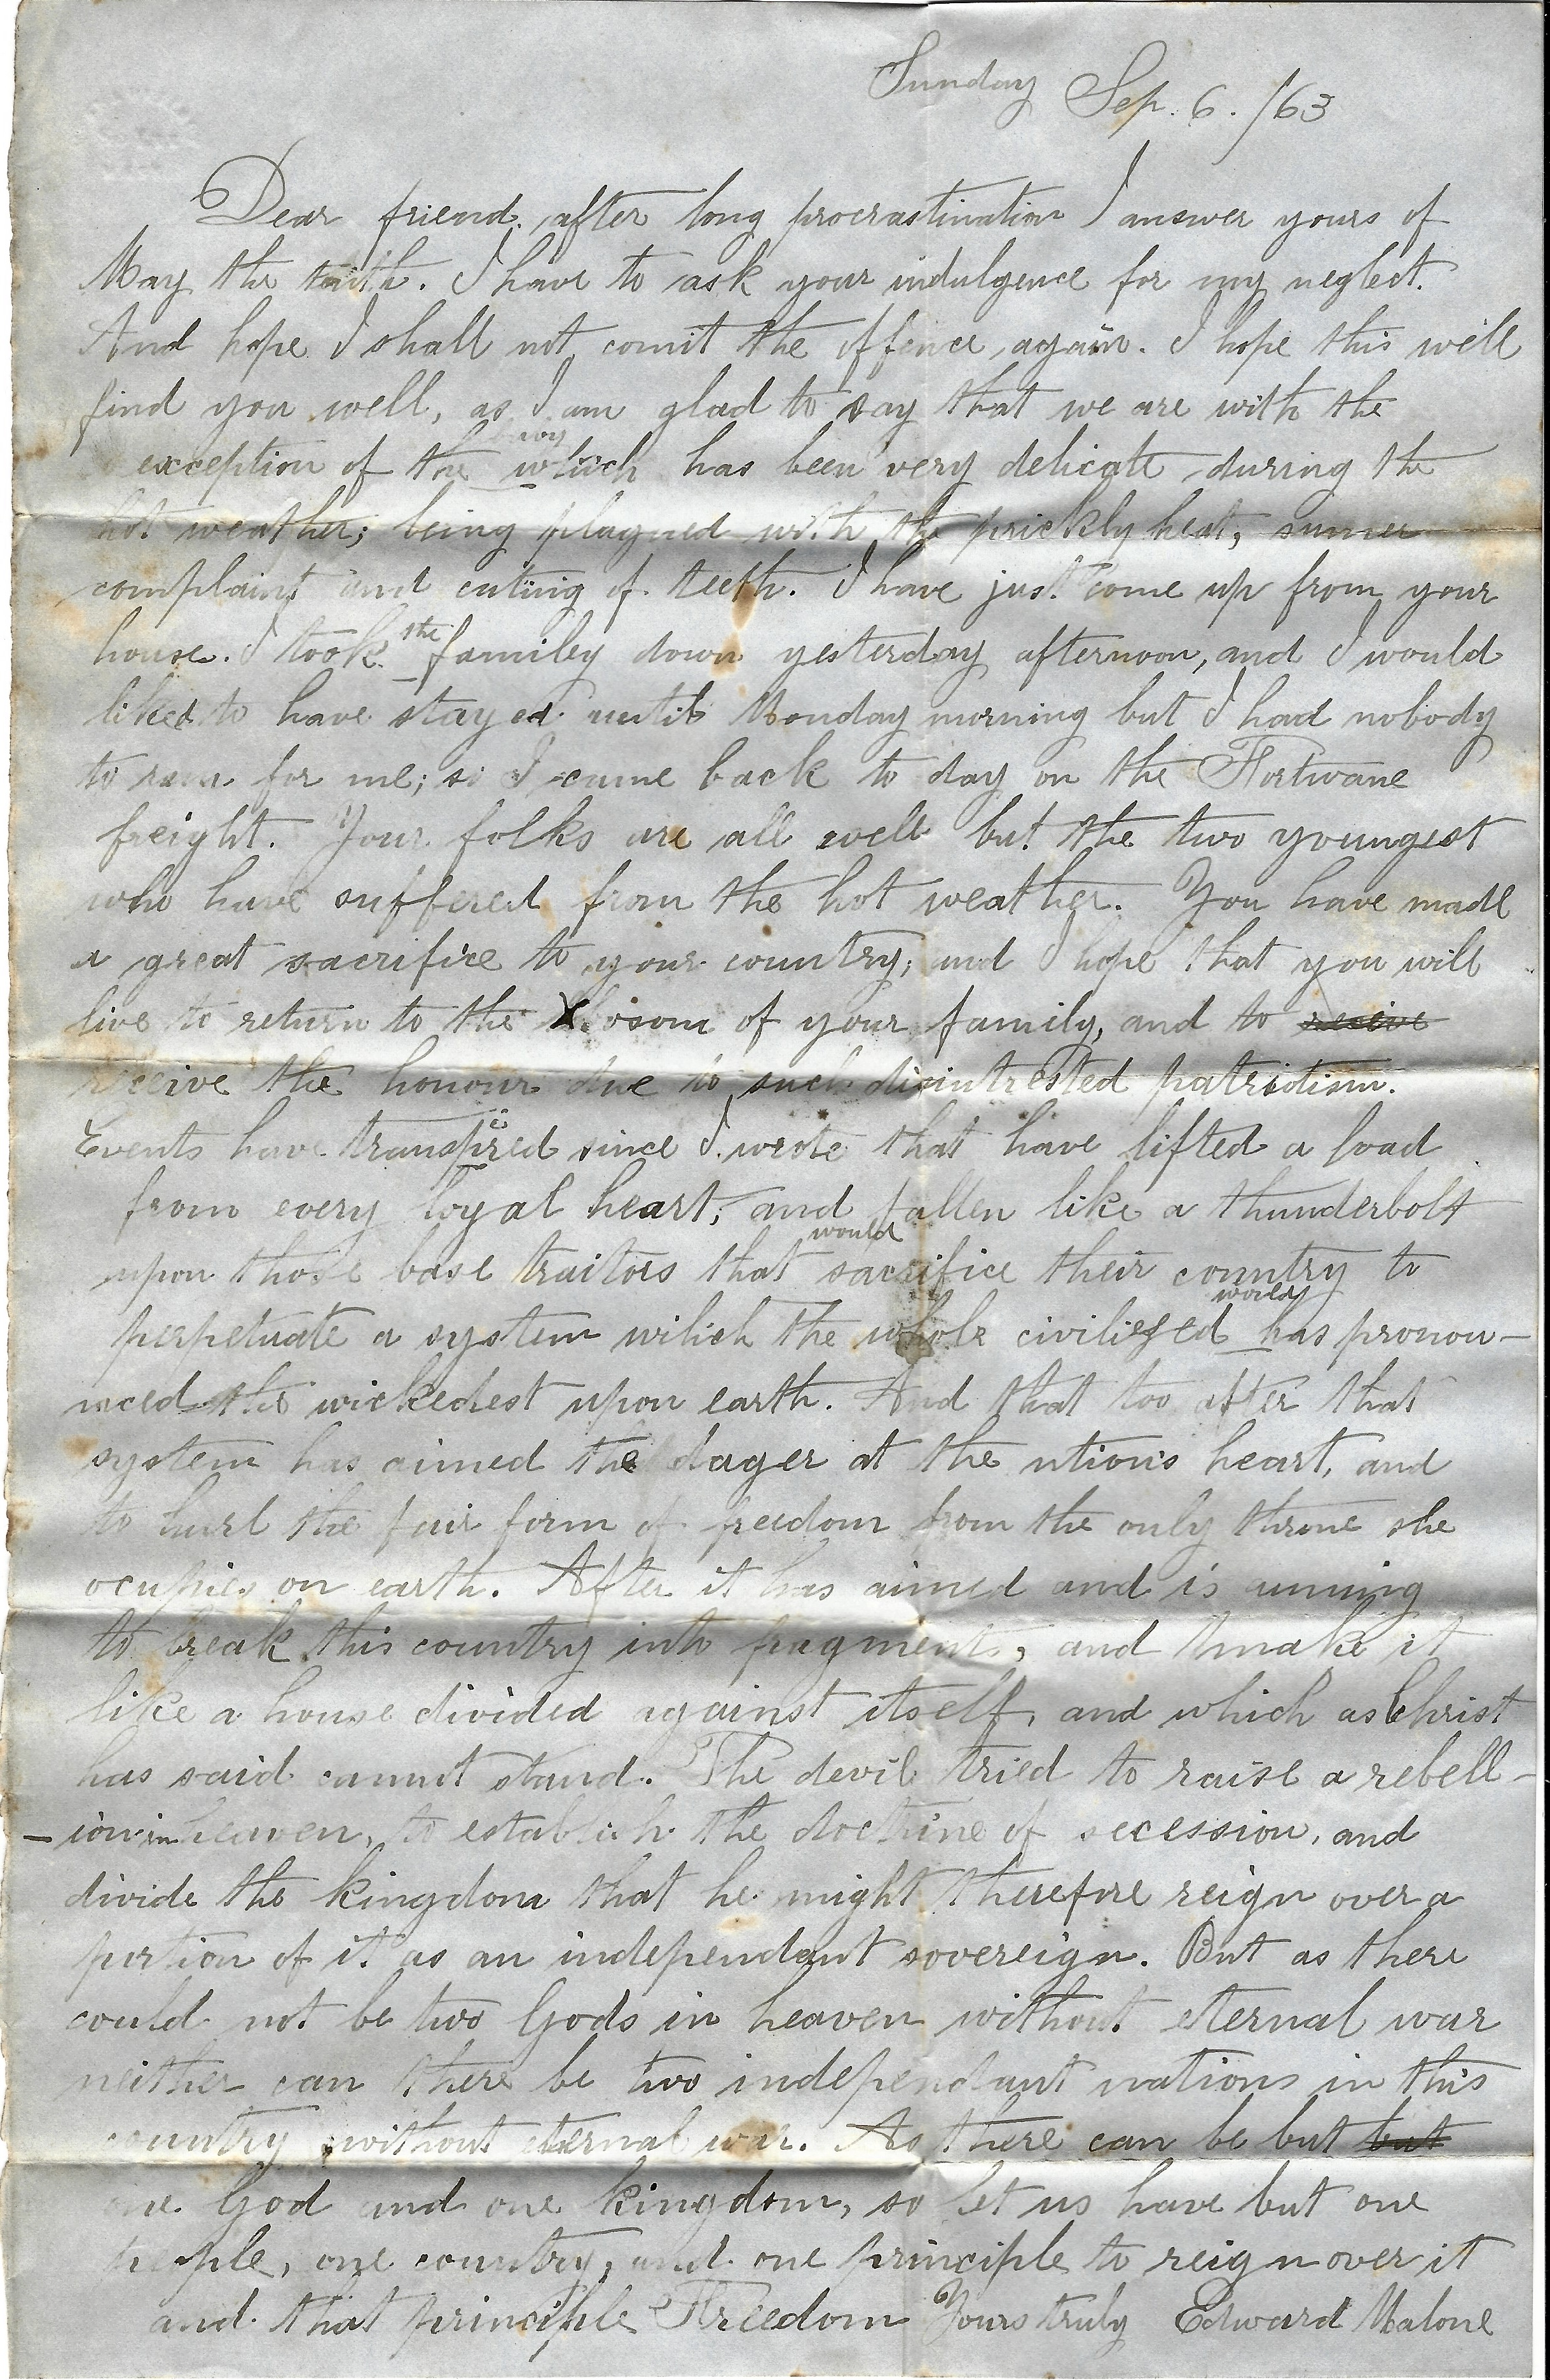 Sunday Sep. 6. /63
Dear friend. after long procrastination I answer yours of
May the tenth. I have to ask your indulgence for my neglect.
And hope I shall not comit the offence again. I hope this will
find you well, as I am glad to say that we are with the
exception of the boy which has been very delicate during the
hot weather; being plagued with the prickly heat, sumer
complaint and cuting of teeth. I have just come up from your
house. I took the familey down yesterday afternoon, and I would
liked to have stayed until Monday morning but I had nobody
to run for me; so I came back to day on the Fortwane
freight. Your folks are all well but the two youngest
who have suffered from the hot weather. You have made
a great sacrifice to your country; and I hope that you will
live to return to the bosom of your family, and to receive
receive the honour due to such disintrested patriotism.
Events have transpired since I wrote that have lifted a load
from every loyal heart; and fallen like a thunderbolt
upon those base traitors that would sacrifice their country to
perpetuate a system which the whole civiliesed world has pronou-
nced the wickedest upon earth. And that too after that
system has aimed the dager at the ntions heart, and
to hurl the fair form of freedom from the only throne she
ocupies on earth. After it has aimed and is aiming
to break this country into fragments, and make it
like a house divided against itself, and which as Christ
has said cannot stand. The devil tried to raise a rebell-
-ion in heaven, to establish the doctrine of secession, and
divide the kingdom that he might therefore reign over a
portion of it as an independant sovereign. But as there
could not be two Gods in heaven without eternal war
neither can there be two independant nations in this
country without eternal war. As there can be but but
one God and one kingdom, so let us have but one
people, one country, and one principle to reign over it
and that principle Freedom Yours truly Edward Malone